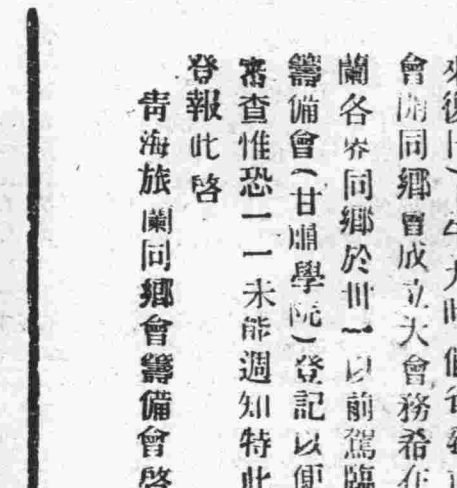 會開同鄉會成立大會務希在
蘭各界同鄉於卅一以前駕臨
籌備會(甘肅學院)登記以便
審查惟恐一一未能週知特此
登報此啓
青海旅蘭同鄉會籌備會啓